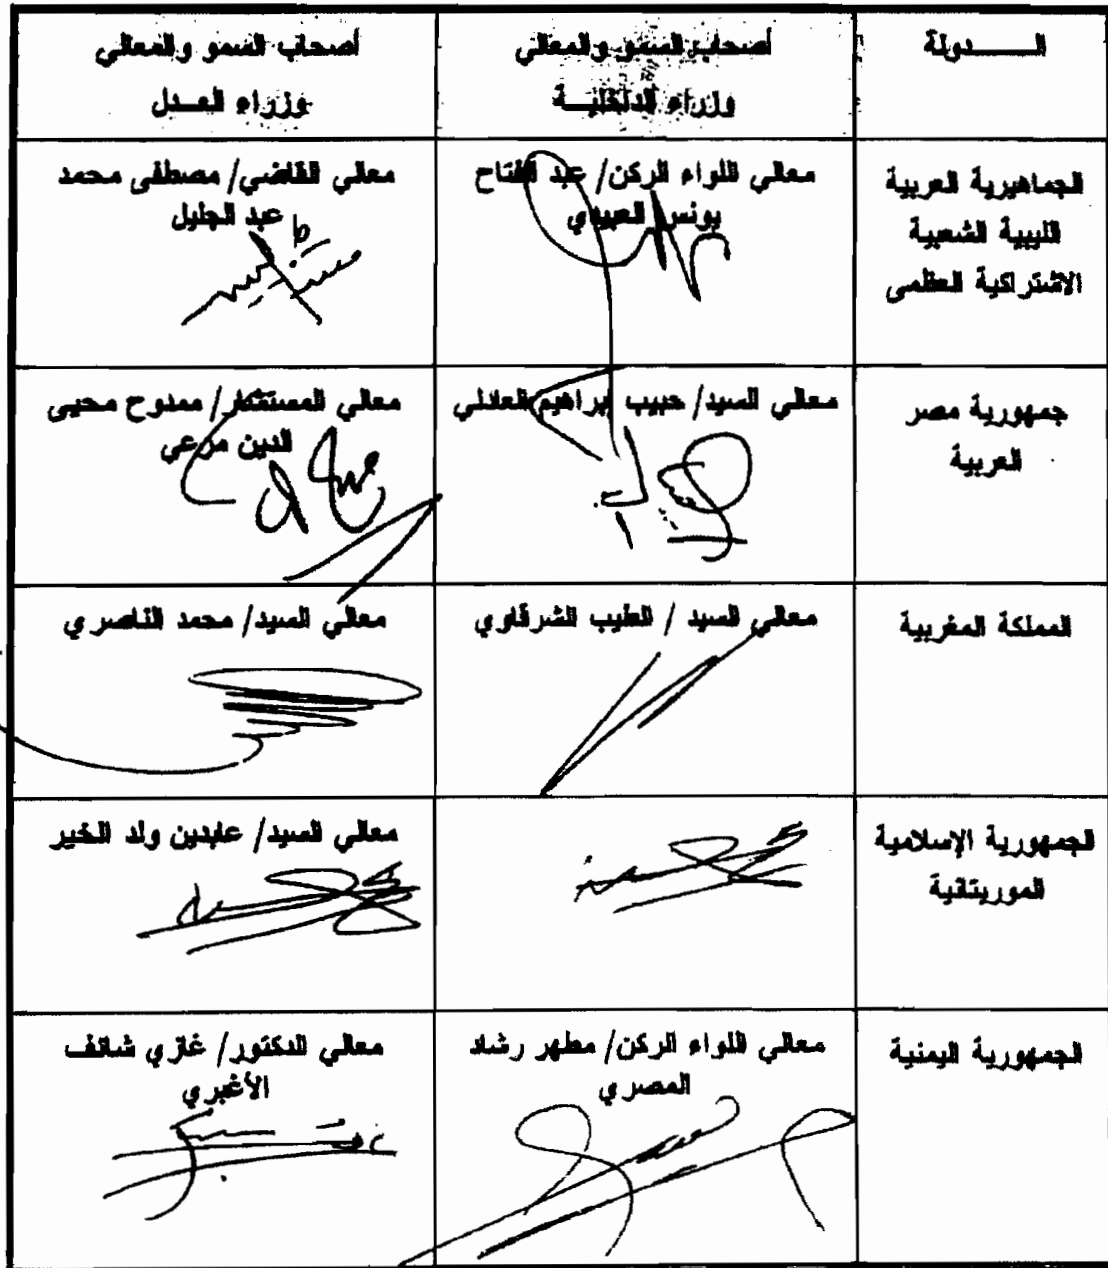 الـــــدولة
أصحاب السمو والمعالي
وزراء الداخليــة
أصحاب السمو والمعالي
وزراء العــدل
الجماهيرية العربية
الليبية الشعبية
الاشتراكية العظمى
معالي اللواء الركن/ عبد الفتاح
يونس العبيدي
معالي القاضي/ مصطفى محمد
عبد الجليل
جمهورية مصر
العربية
معالي السيد/ حبيب إبراهيم العادلي
معالي المستشار/ ممدوح محيى
الدين مرعي
المملكة المغربية
معالي السيد / الطيب الشرقاوي
معالي السيد/ محمد الناصري
الجمهورية الإسلامية
الموريتانية
معالي السيد/ عابدين ولد الخير
الجمهورية اليمنية
معالي اللواء الركن/ مطهر رشاد
المصري
معالي الدكتور/ غازي شائف
الأغبري